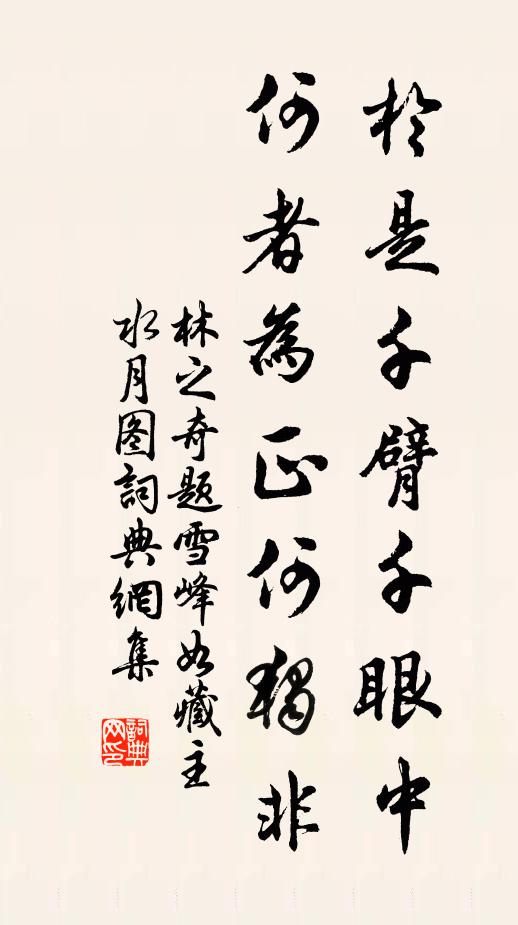 於是千臂千眼中
何者為正何獨非
林之奇题雪峰如藏主
水月图詞典網集
詞典網印